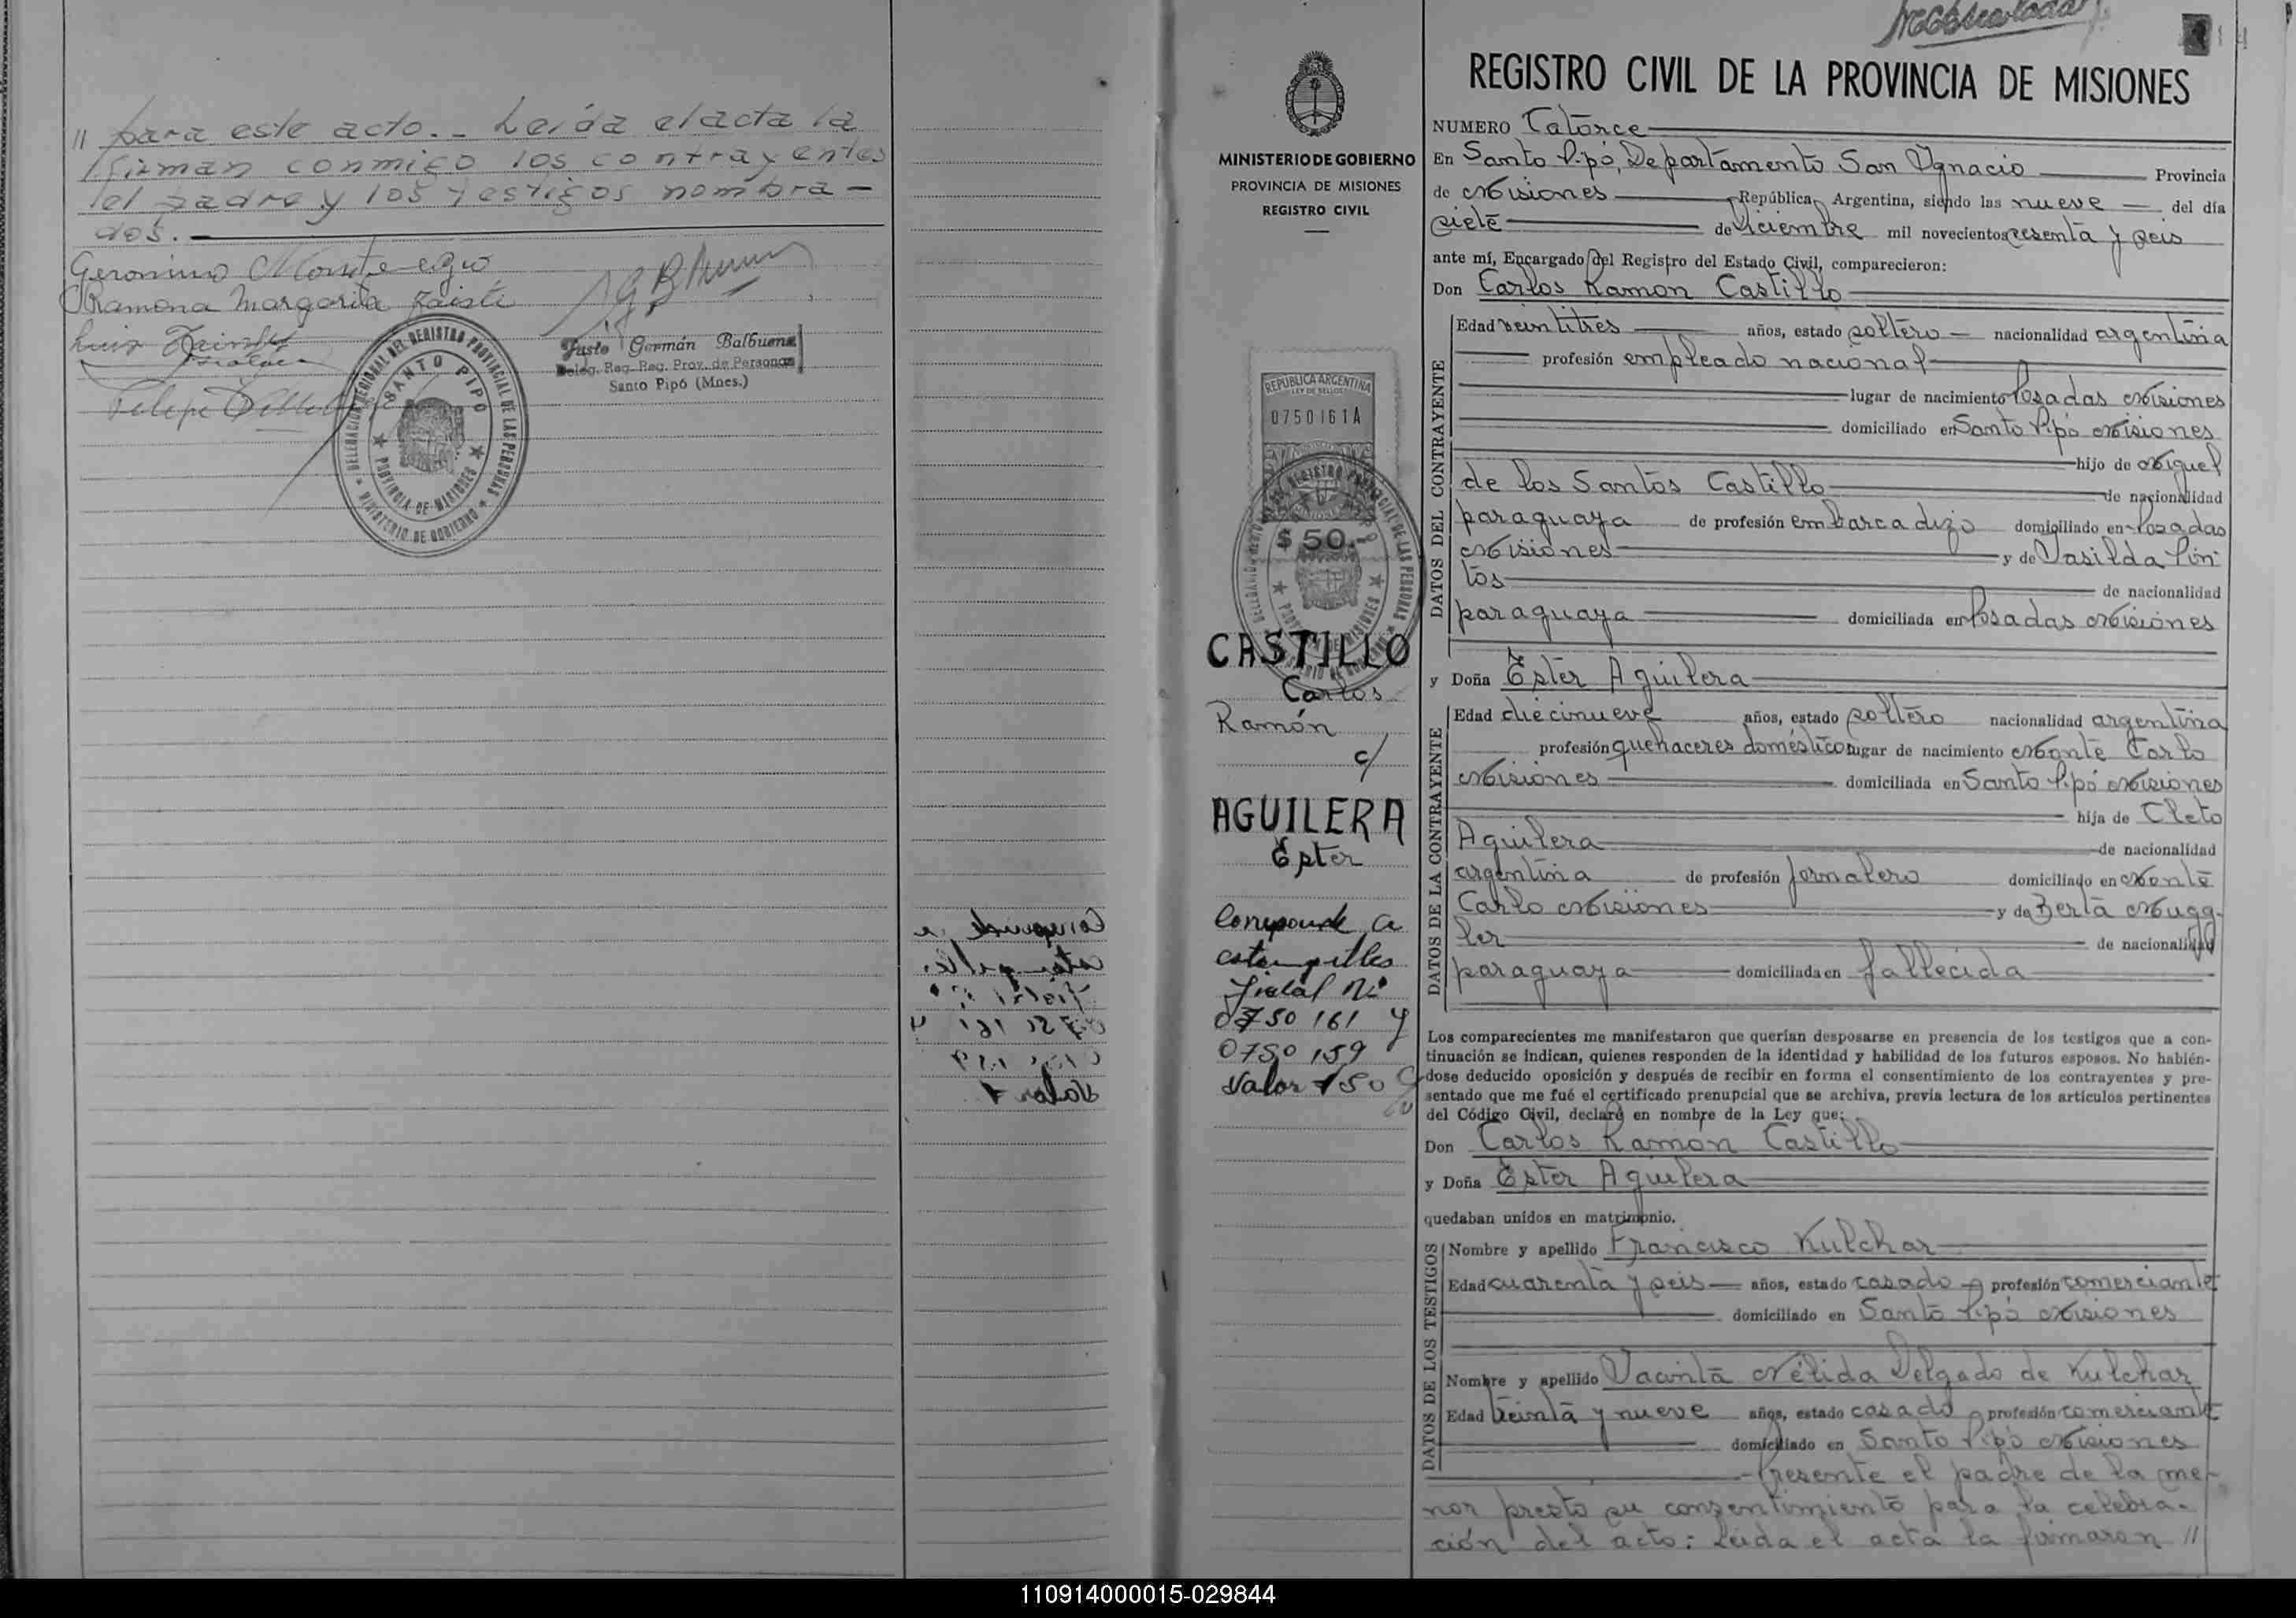 " para este acto.- Leída el acta la
firman conmigo los contrayentes
el padre y los testigos nombra-
dos.
Geronimo
Ramona Margarita
Luis
Felipe
Justo Germán Balbuena
Deleg. Reg. Reg. Prov. de Personas
Santo Pipó (Mnes.)
DELEGACION REGIONAL DEL REGISTRO PROVINCIAL DE LAS PERSONAS
SANTO PIPO
PROVINCIA DE MISIONES
MINISTERIO DE GOBIERNO
MINISTERIO DE GOBIERNO
PROVINCIA DE MISIONES
REGISTRO CIVIL
REPUBLICA ARGENTINA
LEY DE SELLOS
0750161A
$ 50.-
CASTILLO
Carlos
Ramón
c/
AGUILERA
Ester
Corresponde a
estampillas
fiscal Nº
0750161 y
0750159
Valor $50
REGISTRO CIVIL DE LA PROVINCIA DE MISIONES
NUMERO Catorce
En Santo Pipó, Departamento San Ygnacio Provincia
de Misiones República Argentina, siendo las nueve del día
siete de Diciembre mil novecientos sesenta y seis
ante mí, Encargado del Registro del Estado Civil, comparecieron:
Don Carlos Ramon Castillo
DATOS DEL CONTRAYENTE
Edad veintitres años, estado soltero nacionalidad argentina
profesión empleado nacional
lugar de nacimiento Posadas Misiones
domiciliado en Santo Pipó Misiones
hijo de Miguel
de los Santos Castillo de nacionalidad
paraguaya de profesión embarcadizo domiciliado en Posadas
Misiones y de Dasilda Sin
tos de nacionalidad
paraguaya domiciliada en Posadas Misiones
y Doña Ester Aguilera
DATOS DE LA CONTRAYENTE
Edad diecinueve años, estado soltero nacionalidad argentina
profesión quehaceres domésticos lugar de nacimiento Monte Carlo
Misiones domiciliada en Santo Pipó Misiones
hija de Cleto
Aguilera de nacionalidad
argentina de profesión jornalero domiciliado en Monte
Carlo Misiones y de Berta Mugg-
ler de nacionalidad
paraguaya domiciliada en fallecida
Los comparecientes me manifestaron que querían desposarse en presencia de los testigos que a con-
tinuación se indican, quienes responden de la identidad y habilidad de los futuros esposos. No habién-
dose deducido oposición y después de recibir en forma el consentimiento de los contrayentes y pre-
sentado que me fué el certificado prenupcial que se archiva, previa lectura de los artículos pertinentes
del Código Civil, declaré en nombre de la Ley que:
Don Carlos Ramón Castillo
y Doña Ester Aguilera
quedaban unidos en matrimonio.
DATOS DE LOS TESTIGOS
Nombre y apellido Francisco Kulchar
Edad cuarenta y seis años, estado casado profesión comerciante
domiciliado en Santo Pipó Misiones
Nombre y apellido Jacinta Nélida Delgado de Kulchar
Edad treinta y nueve años, estado casado profesión comerciante
domiciliado en Santo Pipó Misiones
Presente el padre de la me-
nor presto su consentimiento para la celebra-
ción del acto: Leida el acta la firmaron "
110914000015-029844